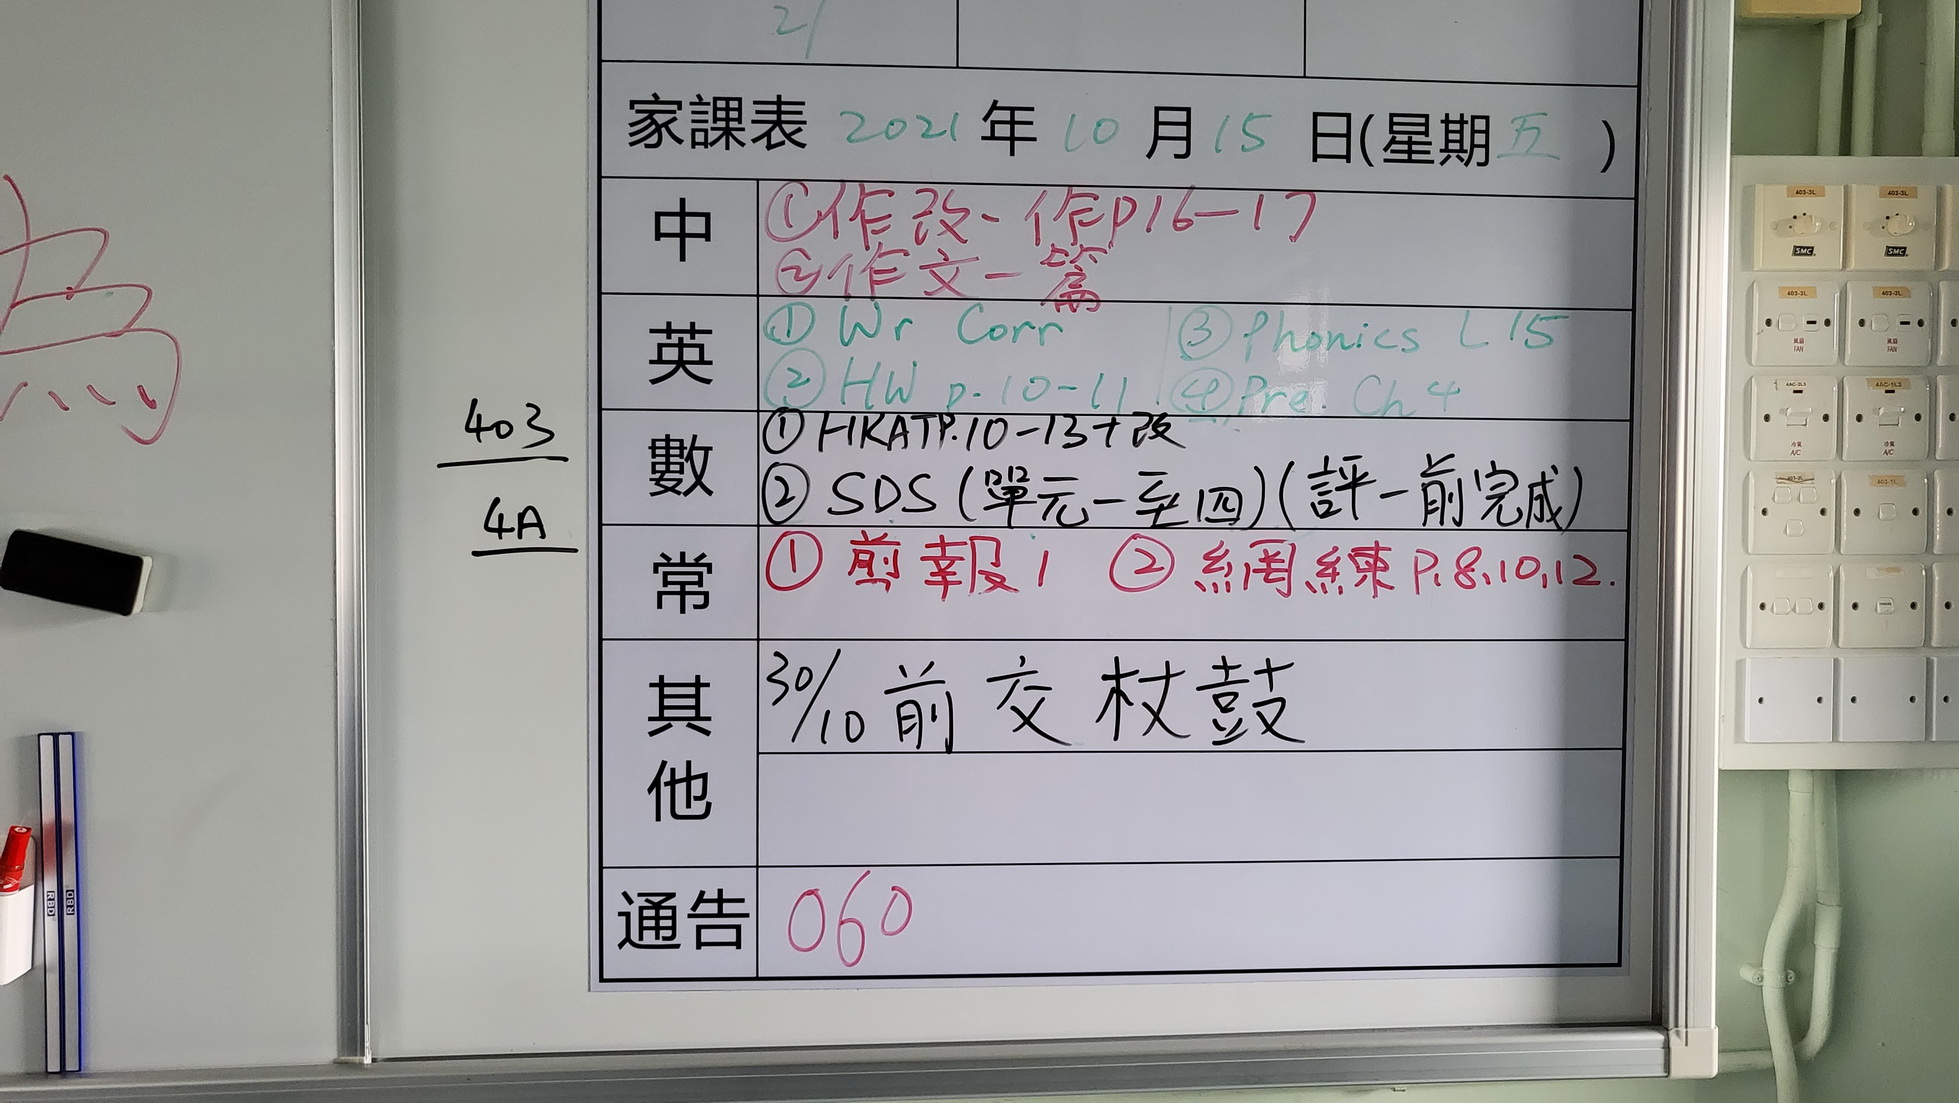 21
家課表 2021 年 10 月 15 日(星期五)
中
①作改-作P16-17
②作文一篇
英
① Wr Corr ③ Phonics L15
② HW p.10-11 ④ Pre. Ch 4
數
① HKAT P.10-13+改
② SDS (單元一至四)(評一前完成)
常
① 剪報1 ② 網練 P.8,10,12.
其他
30/10 前交杖鼓
通告
060
403
4A
為
RBD
RBD
403-3L
403-3L
SMC
SMC
403-3L
403-3L
風扇
FAN
風扇
FAN
冷氣
A/C
冷氣
A/C